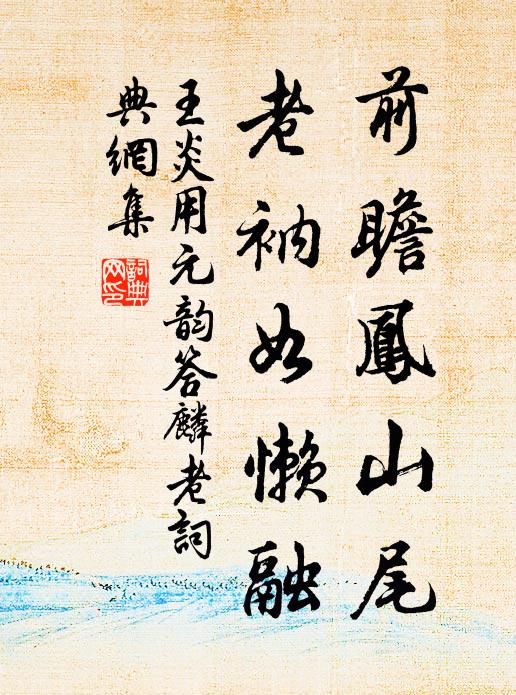 前瞻鳳山尾
老衲如懶融
王炎用元韵答麟老詞
典網集
詞典網印